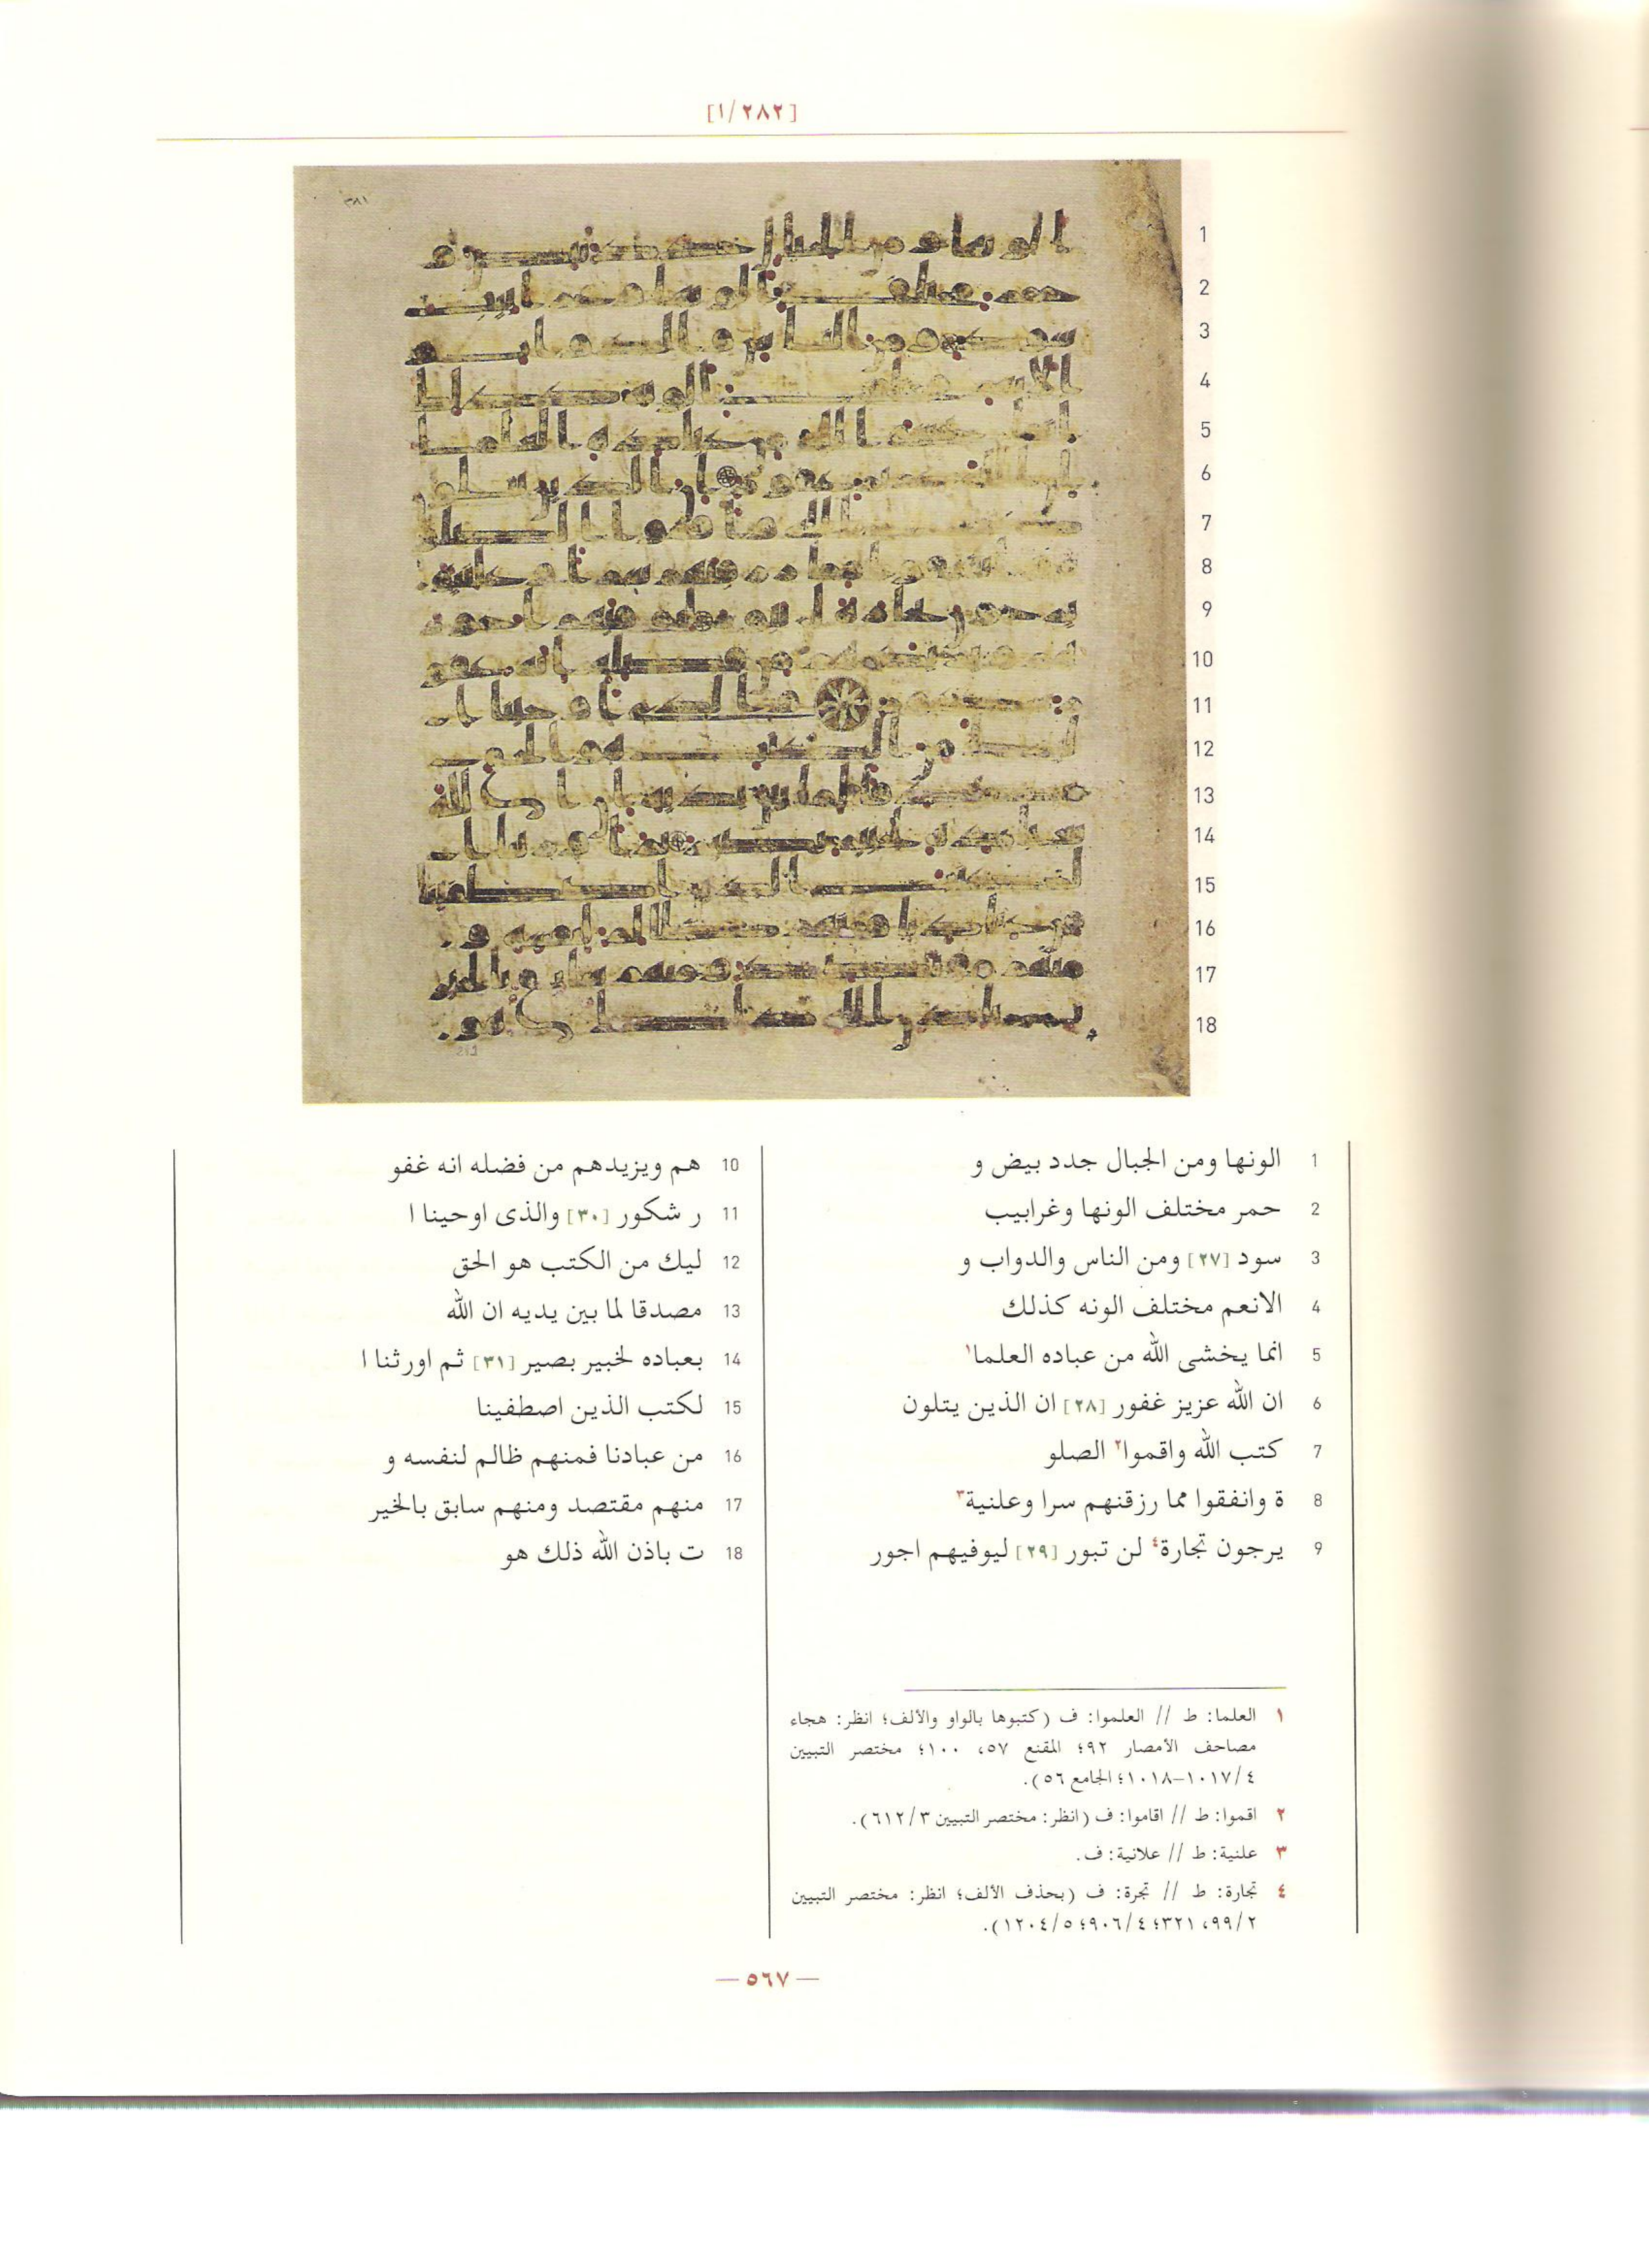 [١/٢٨٢]
1
2
3
4
5
6
7
8
9
10
11
12
13
14
15
16
17
18
1 الونها ومن الجبال جدد بيض و
2 حمر مختلف الونها وغرابيب
3 سود [٢٧] ومن الناس والدواب و
4 الانعم مختلف الونه كذلك
5 انما يخشى الله من عباده العلما١
6 ان الله عزيز غفور [٢٨] ان الذين يتلون
7 كتب الله واقموا٢ الصلو
8 ة وانفقوا مما رزقنهم سرا وعلنية٣
9 يرجون تجارة٤ لن تبور [٢٩] ليوفيهم اجور
10 هم ويزيدهم من فضله انه غفو
11 ر شكور [٣٠] والذى اوحينا ا
12 ليك من الكتب هو الحق
13 مصدقا لما بين يديه ان الله
14 بعباده لخبير بصير [٣١] ثم اورثنا ا
15 لكتب الذين اصطفينا
16 من عبادنا فمنهم ظالم لنفسه و
17 منهم مقتصد ومنهم سابق بالخير
18 ت باذن الله ذلك هو
١ العلما: ط // العلموا: ف (كتبوها بالواو والألف؛ انظر: هجاء
مصاحف الأمصار ٩٢؛ المقنع ٥٧، ١٠٠؛ مختصر التبيين
٤/١٠١٧-١٠١٨؛ الجامع ٥٦).
٢ اقموا: ط // اقاموا: ف (انظر: مختصر التبيين ٣/٦١٢).
٣ علنية: ط // علانية: ف.
٤ تجارة: ط // تجرة: ف (بحذف الألف؛ انظر: مختصر التبيين
٢/٩٩، ٣٢١؛ ٤/٩٠٦؛ ٥/١٢٠٤).
— ٥٦٧ —